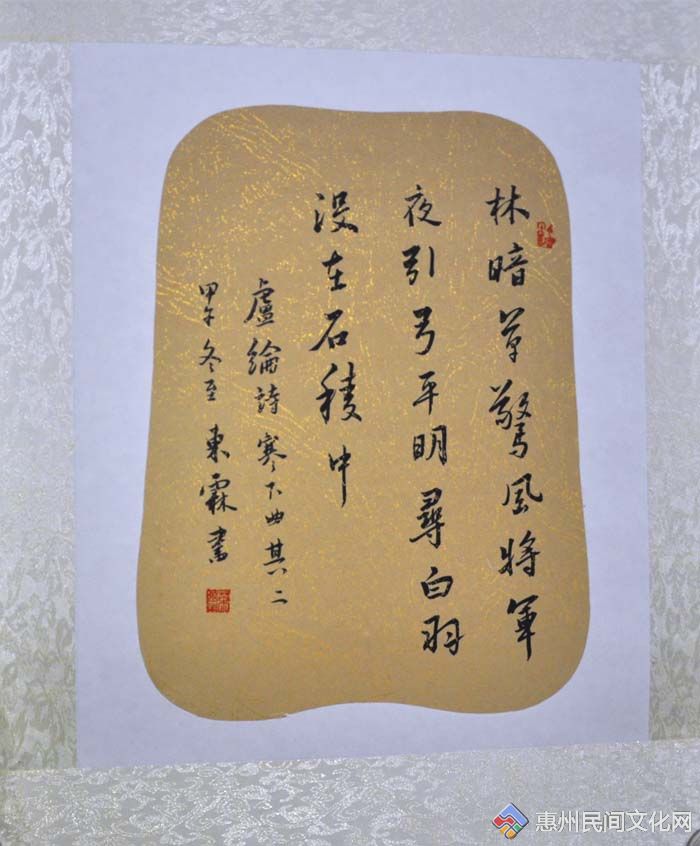 林暗草驚風將軍
夜引弓平明尋白羽
没在石稜中
盧綸詩寒下曲其二
甲午冬至東霖書
惠州民间文化网